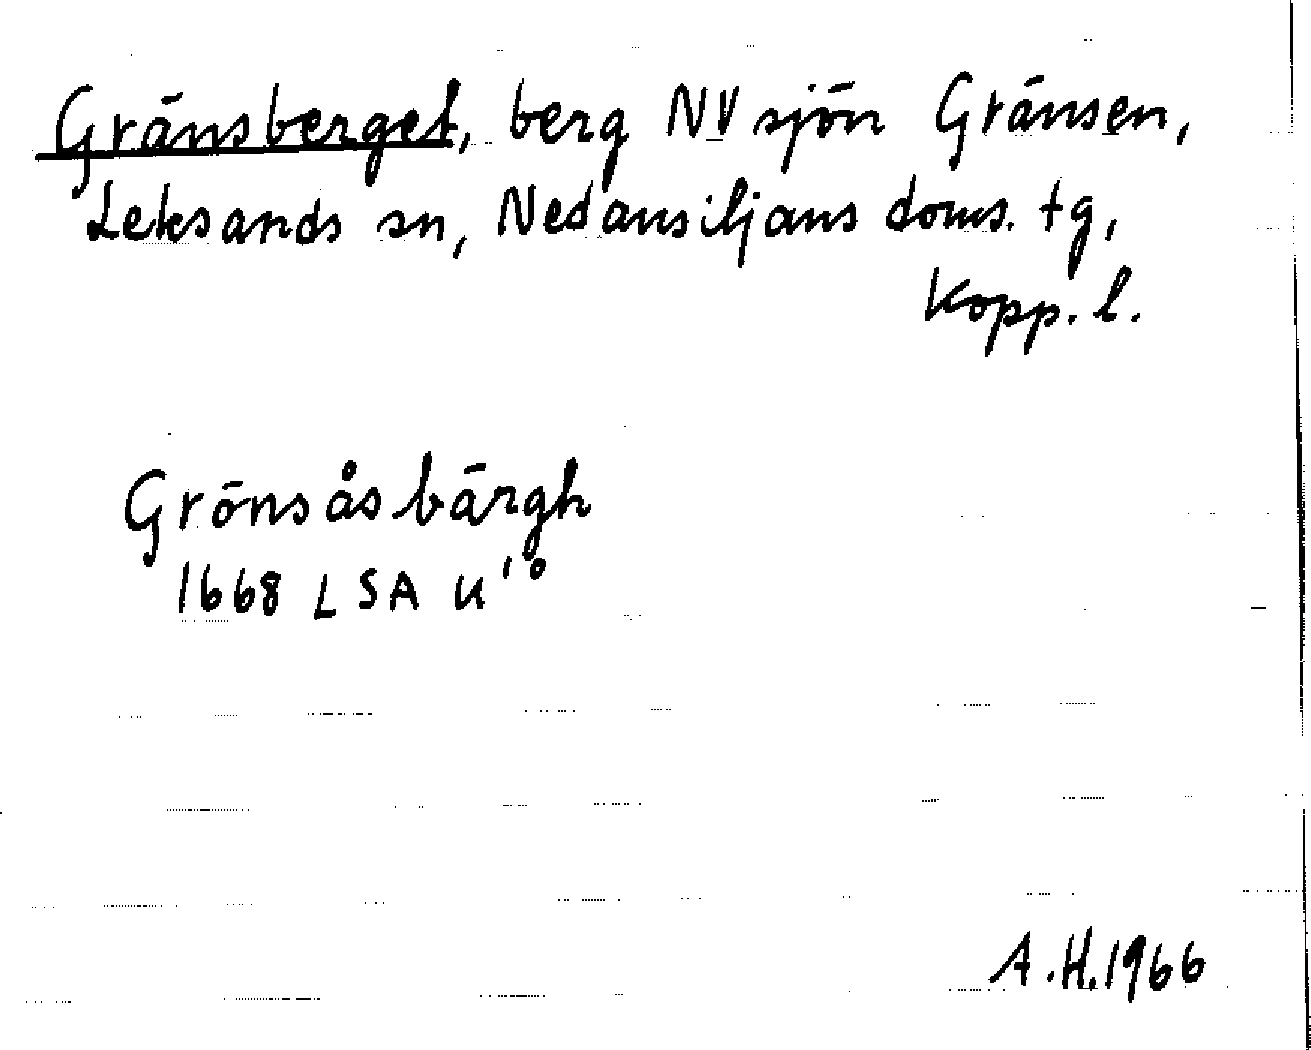 Gränsberget, berg NV sjön Gränsen,
Leksands sn, Nedansiljans doms. tg,
Kopp. l.
Grönsåsbärgh
1668 LSA U'°
A.H. 1966